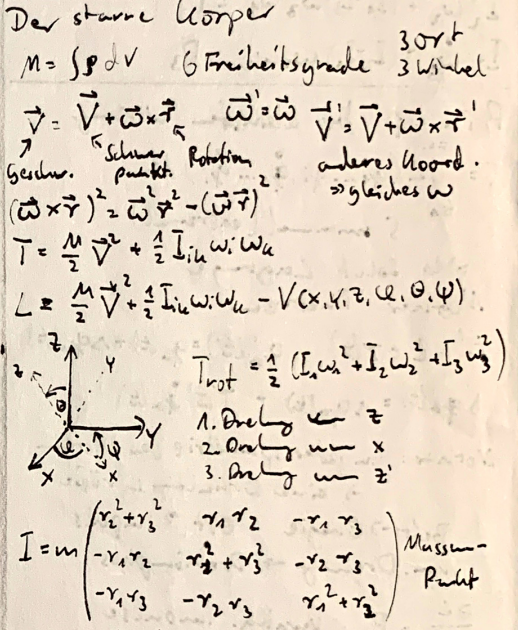 Der starre Körper
M = ∫ρ dV   6 Freiheitsgrade   3 Ort
3 Winkel
v⃗ = V⃗ + ω⃗ × r⃗   ω⃗' = ω⃗   V⃗' = V⃗ + ω⃗ × r⃗'
Geschw.   Schwerpunkt.   Rotation   anderes Koord.
⇒ gleiches ω
(ω⃗ × r⃗)² = ω⃗² r⃗² − (ω⃗ r⃗)²
T = M/2 V⃗² + 1/2 I_ik ω_i ω_k
L = M/2 V⃗² + 1/2 I_ik ω_i ω_k − V(x, y, z, φ, θ, ψ)
z   Y   Z   θ   Y   φ   ψ   X   x
T_rot = 1/2 (I_1 ω_1² + I_2 ω_2² + I_3 ω_3²)
1. Drehung um z
2. Drehung um x
3. Drehung um z'
I = m ( r_2² + r_3²   r_1 r_2   −r_1 r_3
−r_1 r_2   r_2² + r_3²   −r_2 r_3
−r_1 r_3   −r_2 r_3   r_1² + r_2² )   Massenpunkt